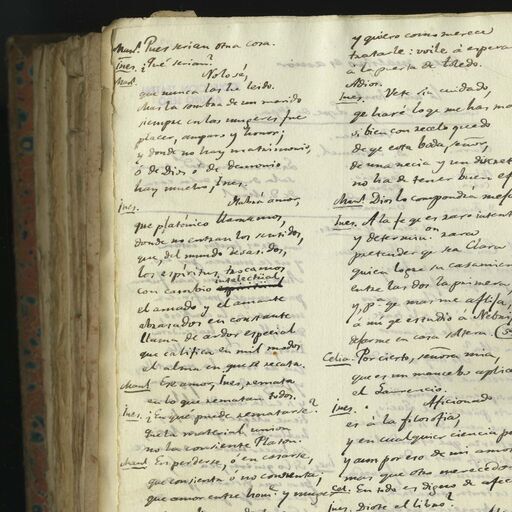 Man.l Pues serian otra cosa.
Ines. ¿Qué serian?
Man.l No lo sé,
que nunca los he leido.
Mas la sombra de un marido
siempre en las mugeres fué
placer, amparo y honor;
y donde no hay matrimonio,
ó de Dios ó de demonio
hay mucho, Ines.
Ines. Mucho amor,
que platónico llamamos,
donde no entran los sentidos,
que, del mundo desasidos,
los espíritus trocamos
con cambio intelectual,
el amado y el amante
abrasados en constante
llama de ardor especial
que califica en mil modos
el alma en que se recata.
Man.l Ese amor, Ines, remata
en lo que rematan todos.
Ines. ¿En qué puede rematarse?
que la material union
no la consiente Platon.
Man.l En perderse, ó en casarse,
que consienta ó no consienta,
que amor entre hom.e y muger
y quiero como merece
tratarle: voile á esperar
á la puerta de Toledo.
Adios.
Ines. Vete sin cuidado,
q.e haré lo q.e me has
si bien con recelo quedo
de q.e esta boda, señor,
de una necia y un discreto
no ha de tener buen
Man.l Dios lo compondrá
Ines. A la fe q.e es raro
y determin.on rara
pretender q.e sea Clara
quien logre su casamiento
entre las dos la primera,
y, p.a q.e mas me aflija,
á mi q.e estudio á Nebrija
dejarme en casa soltera.
Celia. Por cierto, señora mia,
que es un mancebo
el Laurencio.
Ines. Aficionado
es á la filosofia,
y en cualquier ciencia
y aun por eso de mi amor
mas que otro merecedor
Cel. En todo es digno de
Ines. Diote el libro?